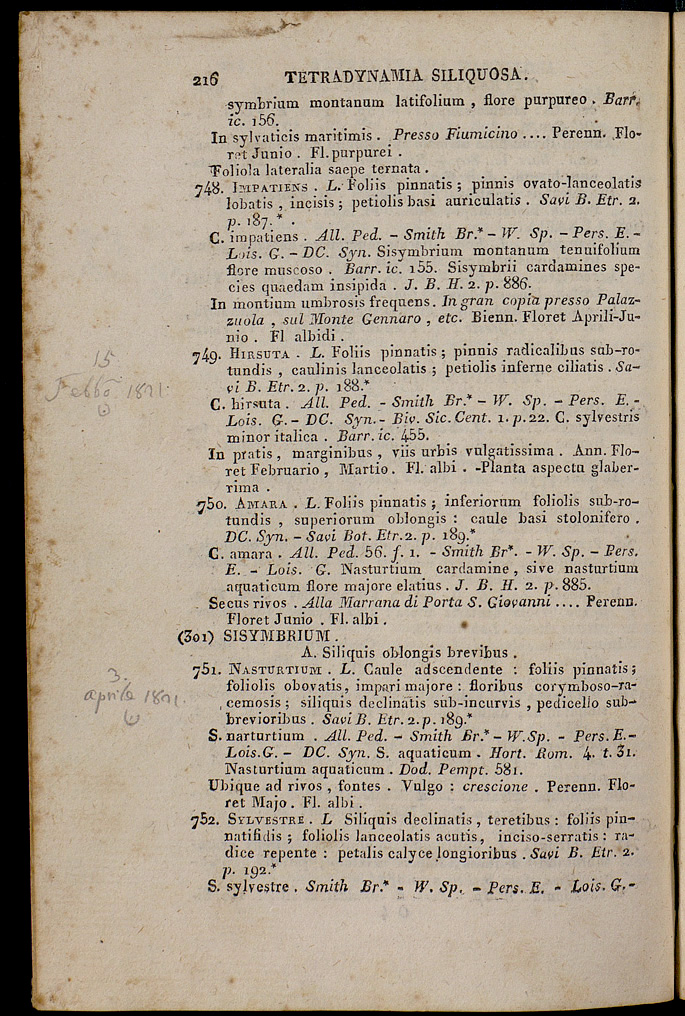 216 TETRADYNAMIA SILIQUOSA.
symbrium montanum latifolium , flore purpureo . Barr.
ic. 156.
In sylvaticis maritimis . Presso Fiumicino .... Perenn. Flo-
ret Junio . Fl. purpurei .
Foliola lateralia saepe ternata .
748. IMPATIENS . L. Foliis pinnatis ; pinnis ovato-lanceolatis
lobatis , incisis ; petiolis basi auriculatis . Savi B. Etr. 2.
p. 187.* .
C. impatiens . All. Ped. - Smith Br.* - W. Sp. - Pers. E. -
Lois. G. - DC. Syn. Sisymbrium montanum tenuifolium
flore muscoso . Barr. ic. 155. Sisymbrii cardamines spe-
cies quaedam insipida . J. B. H. 2. p. 886.
In montium umbrosis frequens. In gran copia presso Palaz-
zuola , sul Monte Gennaro , etc. Bienn. Floret Aprili-Ju-
nio . Fl albidi .
749. HIRSUTA . L. Foliis pinnatis ; pinnis radicalibus sub-ro-
tundis , caulinis lanceolatis ; petiolis inferne ciliatis . Sa-
vi B. Etr. 2. p. 188.*
15
Febbo. 1871.
C. hirsuta . All. Ped. - Smith Br.* - W. Sp. - Pers. E. -
Lois. G. - DC. Syn. - Biv. Sic. Cent. 1. p. 22. C. sylvestris
minor italica . Barr. ic. 455.
In pratis , marginibus , viis urbis vulgatissima . Ann. Flo-
ret Februario , Martio. Fl. albi . -Planta aspectu glaber-
rima .
750. AMARA . L. Foliis pinnatis ; inferiorum foliolis sub-ro-
tundis , superiorum oblongis : caule basi stolonifero .
DC. Syn. - Savi Bot. Etr. 2. p. 189.*
C. amara . All. Ped. 56. f. 1. - Smith Br*. - W. Sp. - Pers.
E. - Lois. G. Nasturtium cardamine , sive nasturtium
aquaticum flore majore elatius . J. B. H. 2. p. 885.
Secus rivos . Alla Marrana di Porta S. Giovanni .... Perenn.
Floret Junio . Fl. albi .
(301) SISYMBRIUM .
A. Siliquis oblongis brevibus .
751. NASTURTIUM . L. Caule adscendente : foliis pinnatis ;
foliolis obovatis, impari majore : floribus corymboso-ra-
cemosis ; siliquis declinatis sub-incurvis , pedicello sub-
brevioribus . Savi B. Etr. 2. p. 189.*
3.
aprile 1871.
S. narturtium . All. Ped. - Smith Br.* - W. Sp. - Pers. E. -
Lois. G. - DC. Syn. S. aquaticum . Hort. Rom. 4. t. 31.
Nasturtium aquaticum . Dod. Pempt. 581.
Ubique ad rivos , fontes . Vulgo : crescione . Perenn. Flo-
ret Majo . Fl. albi .
752. SYLVESTRE . L Siliquis declinatis , teretibus : foliis pin-
natifidis ; foliolis lanceolatis acutis, inciso-serratis : ra-
dice repente : petalis calyce longioribus . Savi B. Etr. 2.
p. 192.*
S. sylvestre . Smith Br.* - W. Sp. - Pers. E. - Lois. G. -